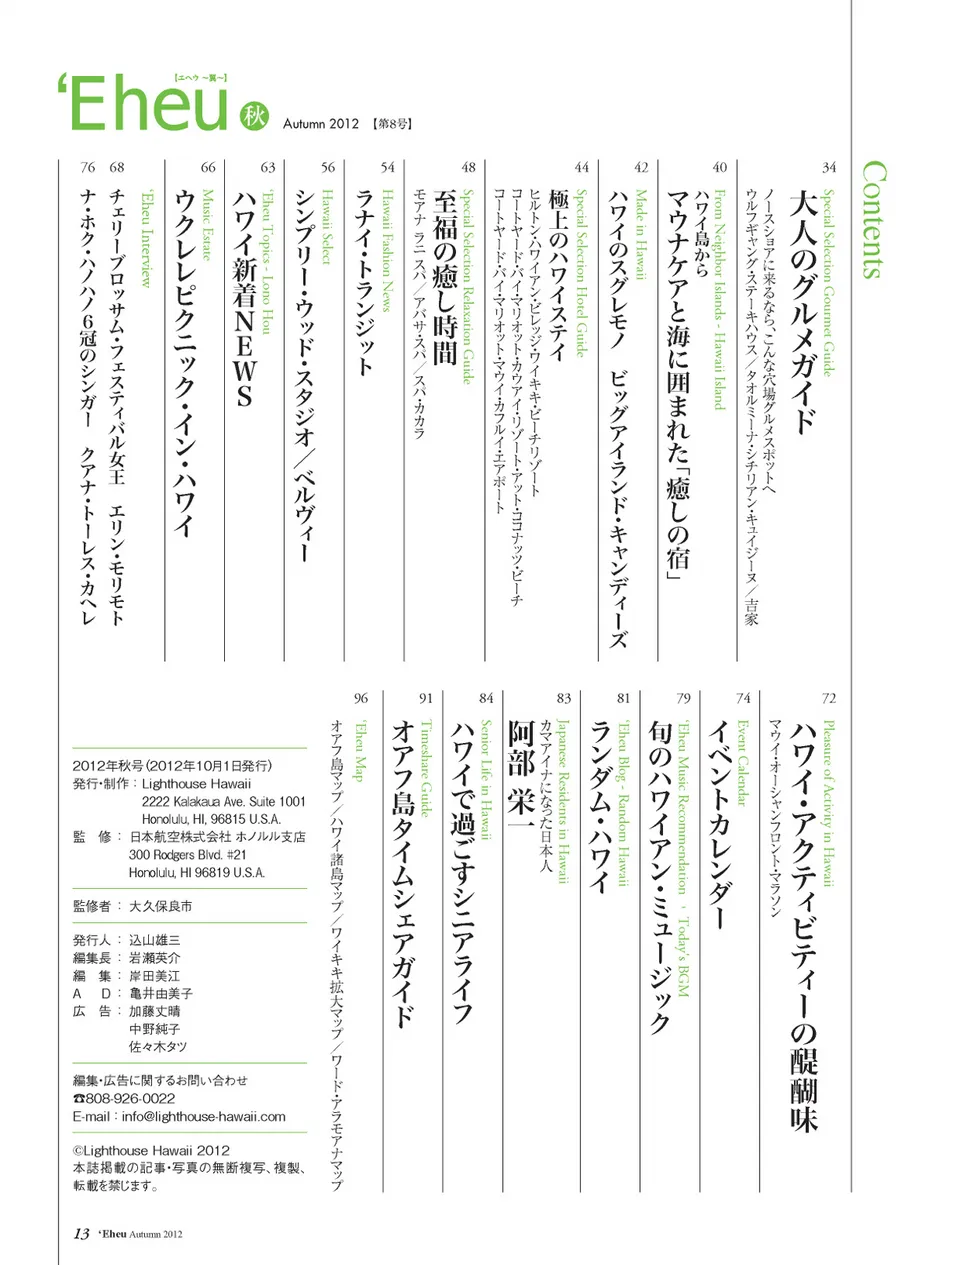 【エヘウ ～翼～】
‘Eheu 秋 Autumn 2012 【第8号】
Contents
34
Special Selection Gourmet Guide
大人のグルメガイド
ノースショアに来るなら、こんな穴場グルメスポットへ
ウルフギャング・ステーキハウス／タオルミーナ・シチリアン・キュイジーヌ／吉家
40
From Neighbor Islands - Hawaii Island
ハワイ島から
マウナケアと海に囲まれた「癒しの宿」
42
Made in Hawaii
ハワイのスグレモノ ビッグアイランド・キャンディーズ
44
Special Selection Hotel Guide
極上のハワイステイ
ヒルトン・ハワイアン・ビレッジ・ワイキキ・ビーチリゾート
コートヤード・バイ・マリオット・カウアイ・リゾート・アット・ココナッツ・ビーチ
コートヤード・バイ・マリオット・マウイ・カフルイ・エアポート
48
Special Selection Relaxation Guide
至福の癒し時間
モアナ ラニ スパ／アバサ・スパ／スパ・カカラ
54
Hawaii Fashion News
ラナイ・トランジット
56
Hawaii Select
シンプリー・ウッド・スタジオ／ベルヴィー
63
‘Eheu Topics - Lono Hou
ハワイ新着NEWS
66
Music Estate
ウクレレピクニック・イン・ハワイ
‘Eheu Interview
68
チェリーブロッサム・フェスティバル女王 エリン・モリモト
76
ナ・ホク・ハノハノ6冠のシンガー クアナ・トーレス・カヘレ
72
Pleasure of Activity in Hawaii
ハワイ・アクティビティーの醍醐味
マウイ・オーシャンフロント・マラソン
74
Event Calendar
イベントカレンダー
79
‘Eheu Music Recommendation ‘ Today's BGM
旬のハワイアン・ミュージック
81
‘Eheu Blog - Random Hawaii
ランダム・ハワイ
83
Japanese Residents in Hawaii
カマアイナになった日本人
阿部 栄一
84
Senior Life in Hawaii
ハワイで過ごすシニアライフ
91
Timeshare Guide
オアフ島タイムシェアガイド
96
‘Eheu Map
オアフ島マップ／ハワイ諸島マップ／ワイキキ拡大マップ／ワード・アラモアナマップ
2012年秋号（2012年10月1日発行）
発行・制作：Lighthouse Hawaii
2222 Kalakaua Ave. Suite 1001
Honolulu, HI, 96815 U.S.A.
監 修：日本航空株式会社 ホノルル支店
300 Rodgers Blvd. #21
Honolulu, HI 96819 U.S.A.
監修者：大久保良市
発行人：込山雄三
編集長：岩瀬英介
編 集：岸田美江
A D：亀井由美子
広 告：加藤丈晴
中野純子
佐々木タツ
編集・広告に関するお問い合わせ
☎808-926-0022
E-mail：info@lighthouse-hawaii.com
©Lighthouse Hawaii 2012
本誌掲載の記事・写真の無断複写、複製、
転載を禁じます。
13 ‘Eheu Autumn 2012